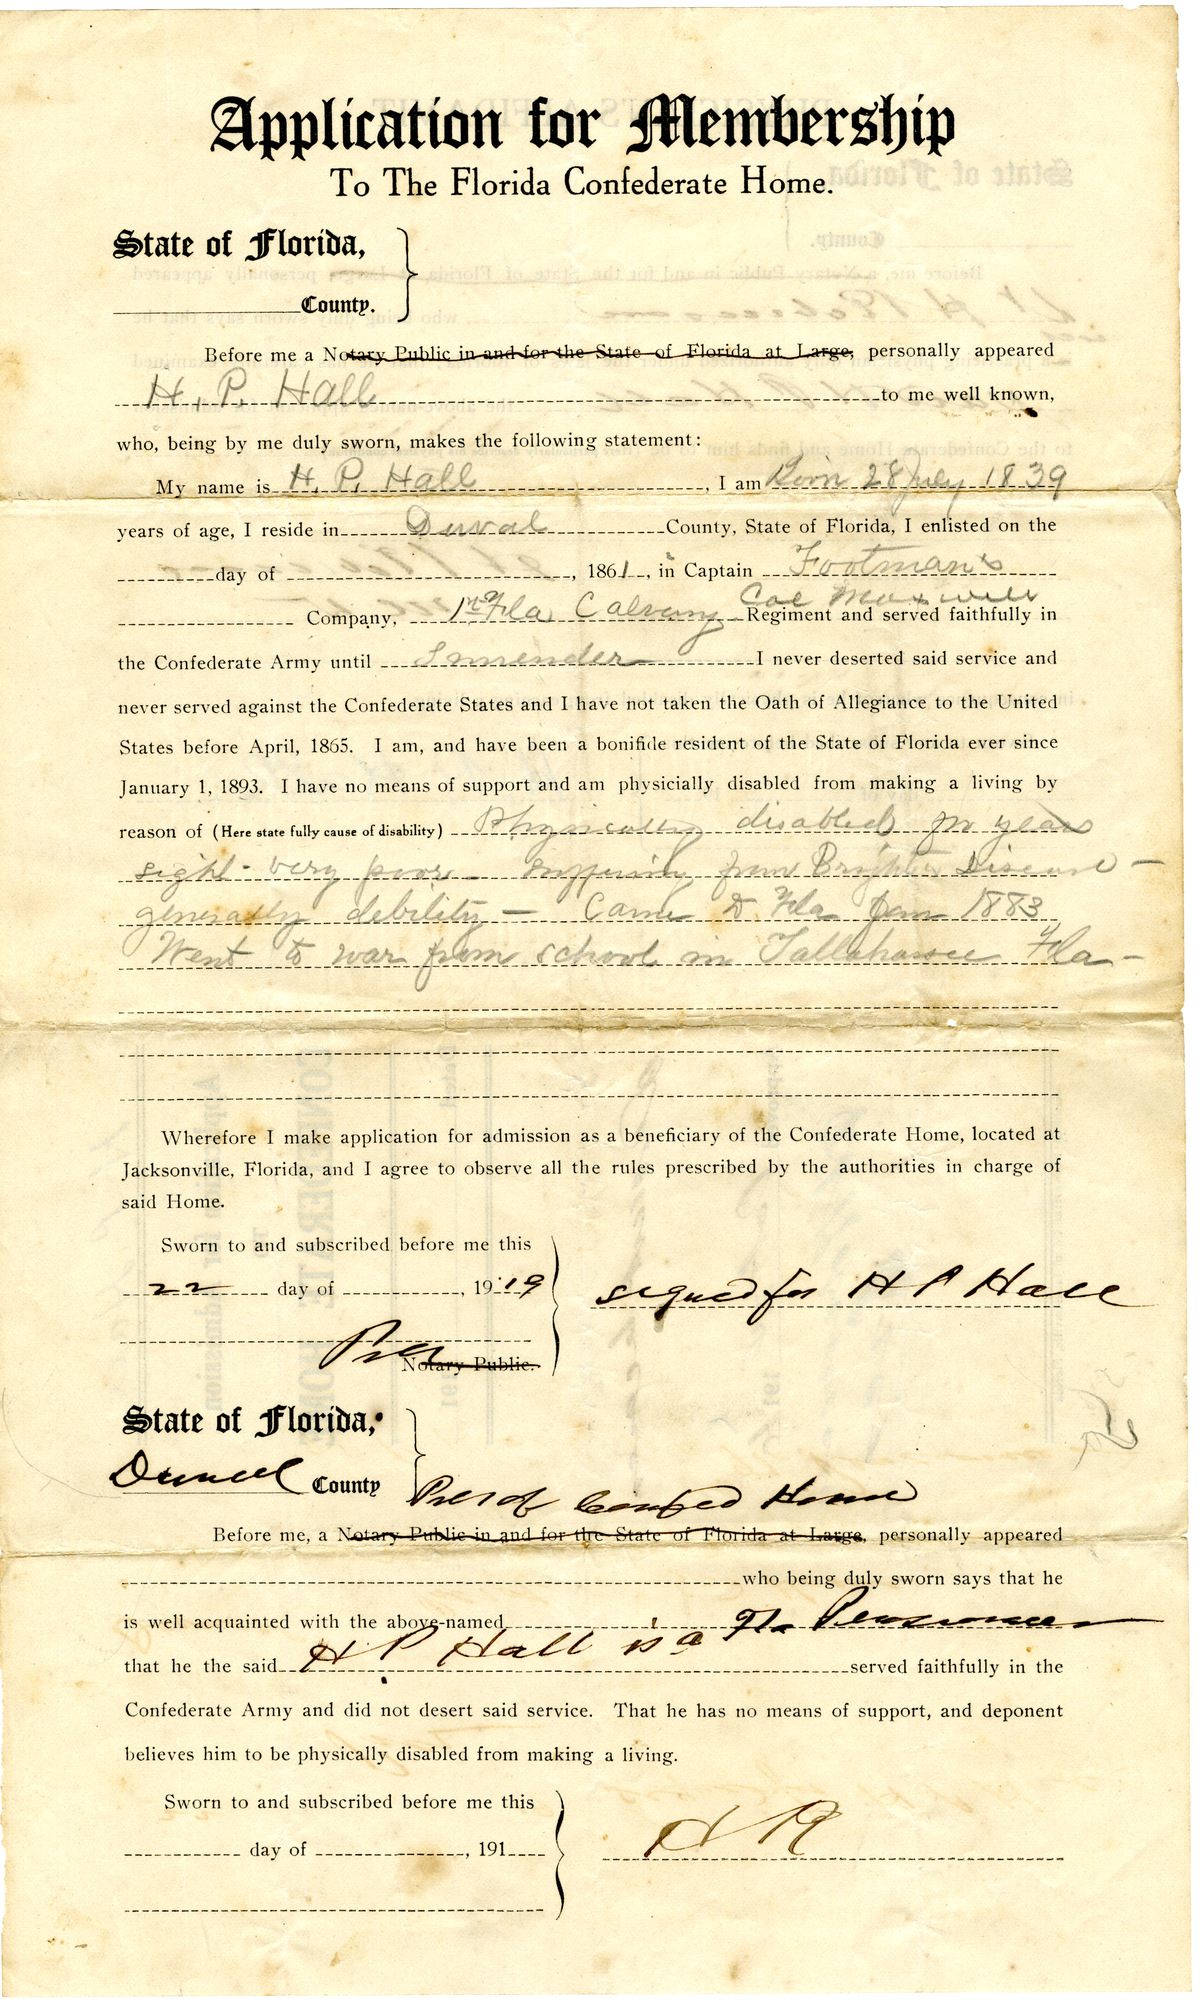 Application for Membership
To The Florida Confederate Home.
State of Florida,
County.
Before me a Notary Public in and for the State of Florida at Large, personally appeared
H. P. Hall to me well known,
who, being by me duly sworn, makes the following statement:
My name is H. P. Hall, I am Born 28 July 1839
years of age, I reside in Duval County, State of Florida, I enlisted on the
day of , 1861, in Captain Footman's
Company, 1st Fla Calvery Col Maxwell Regiment and served faithfully in
the Confederate Army until Surrender I never deserted said service and
never served against the Confederate States and I have not taken the Oath of Allegiance to the United
States before April, 1865. I am, and have been a bonifide resident of the State of Florida ever since
January 1, 1893. I have no means of support and am physicially disabled from making a living by
reason of (Here state fully cause of disability) Physically disabled for years
sight - very poor - suffering from Brights Disease -
generally debility - Came to Fla Jan 1883
Went to war from school in Tallahassee Fla -
Wherefore I make application for admission as a beneficiary of the Confederate Home, located at
Jacksonville, Florida, and I agree to observe all the rules prescribed by the authorities in charge of
said Home.
Sworn to and subscribed before me this
22 day of , 1919
signed for H P Hall
Pres
Notary Public.
State of Florida,
Duval County
Pres of Confed Home
Before me, a Notary Public in and for the State of Florida at Large, personally appeared
who being duly sworn says that he
is well acquainted with the above-named
is a Fla Pensioner
that he the said H P Hall served faithfully in the
Confederate Army and did not desert said service. That he has no means of support, and deponent
believes him to be physically disabled from making a living.
Sworn to and subscribed before me this
day of , 191